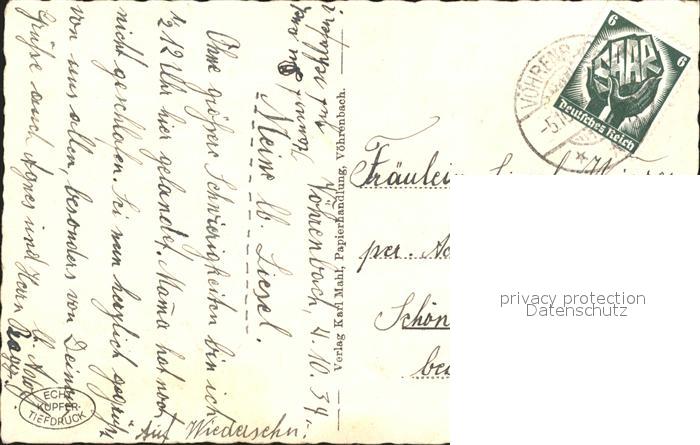 Vöhrenbach, 4.10.34.
Meine lb. Liesel.
Ohne grössere Schwierigkeiten bin ich
1/2 12 Uhr hier gelandet. Mama hat noch
nicht geschlafen. Sei nun herzlich gegrüßt
von uns allen, besonders von Deinem
Grüße auch Agnes und Herrn
Auf Wiedersehn!
Verlag Karl Mahl, Papierhandlung, Vöhrenbach.
ECHT
KUPFER-
TIEFDRUCK
VÖHRENB
6 6
SAAR
Deutsches Reich
Fräulein
per. Ad
Schön
be
privacy protection
Datenschutz